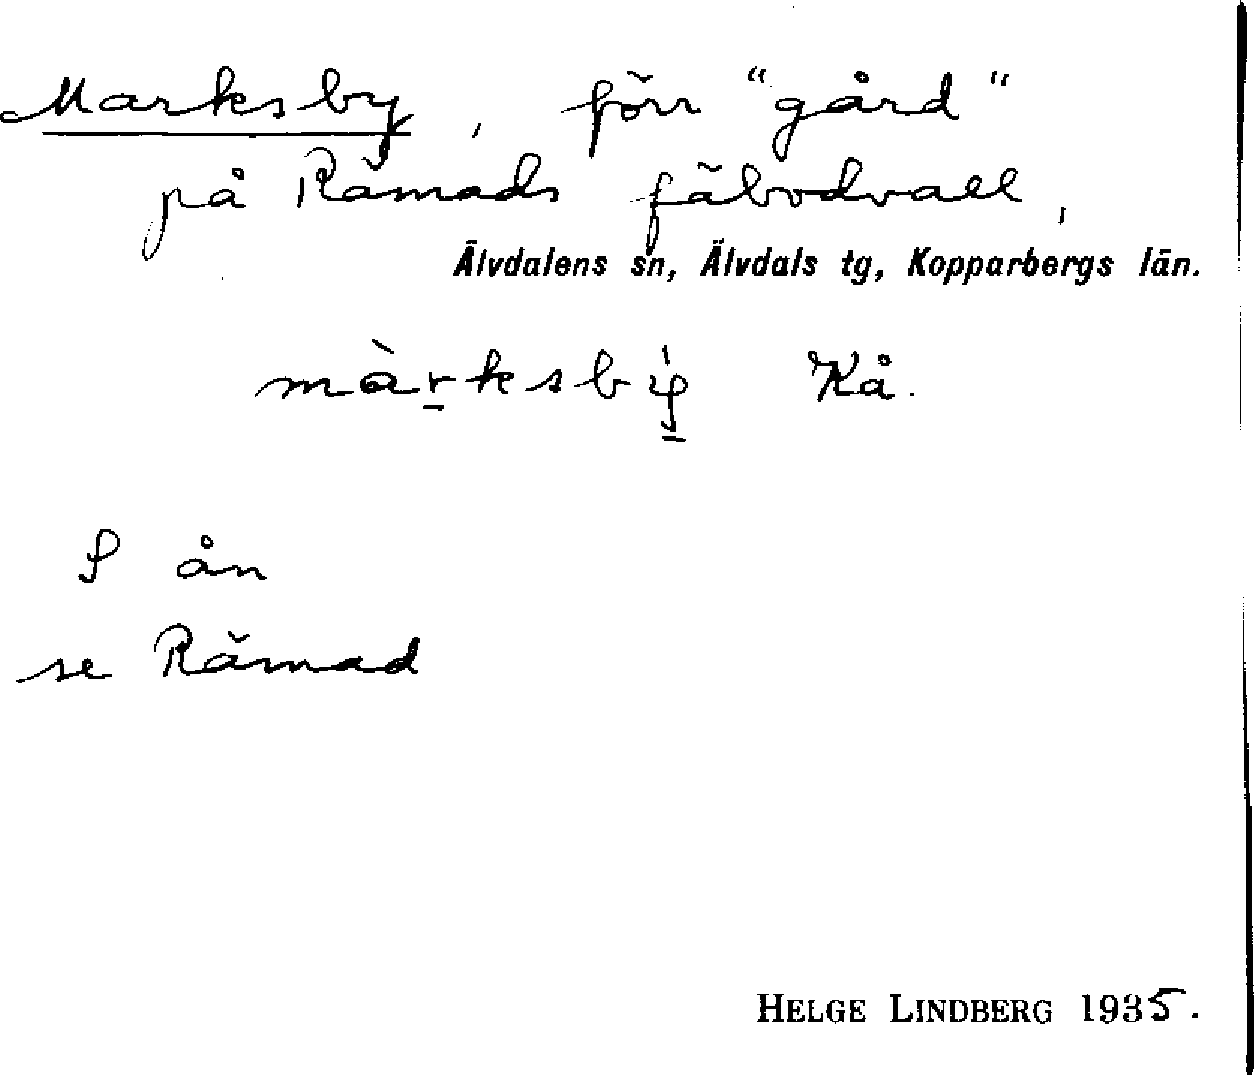 Marksby, förr "gård"
på Råmads fäbodvall,
Älvdalens sn, Älvdals tg, Kopparbergs län.
màrksby Kå.
S ån
se Råmad
HELGE LINDBERG 1935.